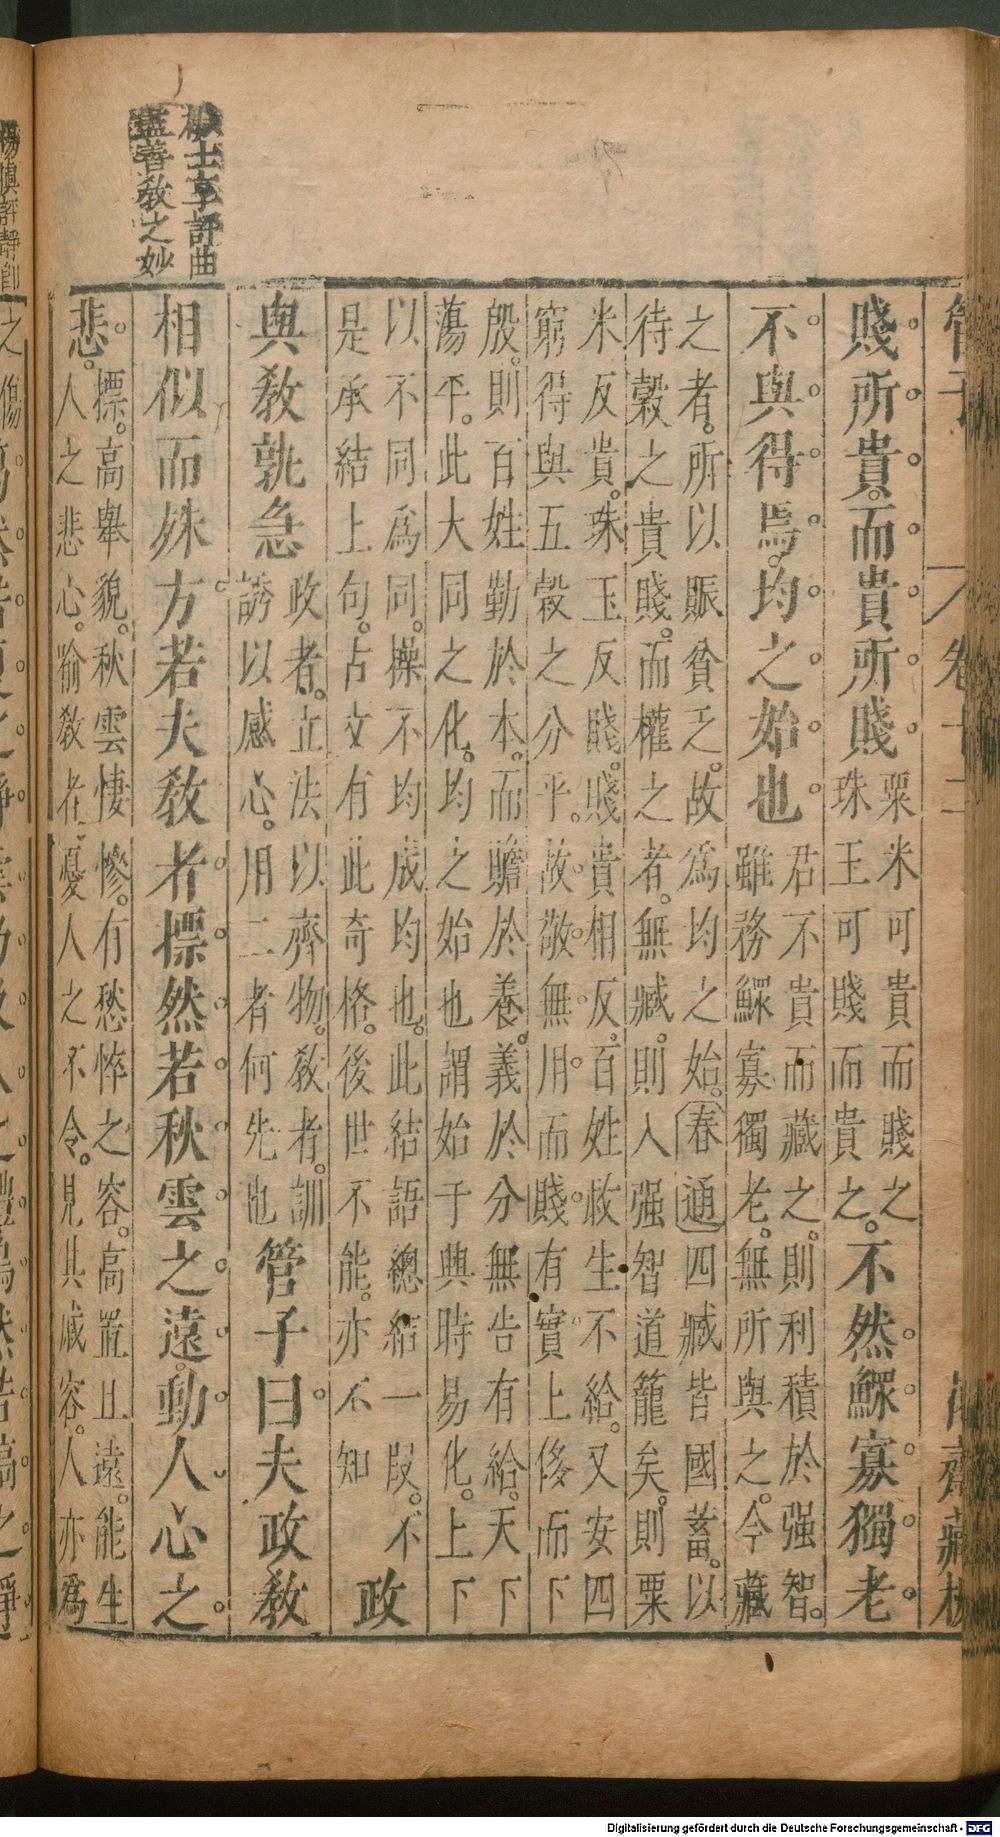 管子
卷十二
齋藏板
士享評曲
盡善敎之妙
賤所貴。而貴所賤粟米可貴而賤之
珠王可賤而貴之。不然鰥寡獨老
不與得焉。均之始也君不貴而藏之。則利積於强智。
雖務鰥寡獨老。無所與之。今藏
之者。所以賑貧乏。故爲均之始。春通四臧皆國蓄。以
待穀之貴賤。而權之者。無臧。則人强智道籠矣。則粟
米反貴。珠玉反賤。賤貴相反。百姓救生不給。又安四
窮得與五穀之分乎。故敬無用而賤有實上侈而下
殷。則百姓勤於本。而贍於養。義於分無告有給。天下
蕩平。此大同之化。均之始也謂始于與時易化。上下
以不同爲同。操不均成均也。此結語總結一段。不
是承結上句。占文有此奇格。後世不能。亦不知
政
與敎孰急政者。立法以齊物。敎者。訓
誘以感心。用二者何先也管子曰夫政敎
相似而殊方若夫敎者摽然若秋雲之遠。動人心之
悲。摽。高舉貌。秋雲悽慘。有愁悴之容。高置且遠。能生
人之悲心。喻敎者憂人之不令。見其戚容。人亦爲
楊慎評靜卽
之傷
Digitalisierung gefördert durch die Deutsche Forschungsgemeinschaft - DFG